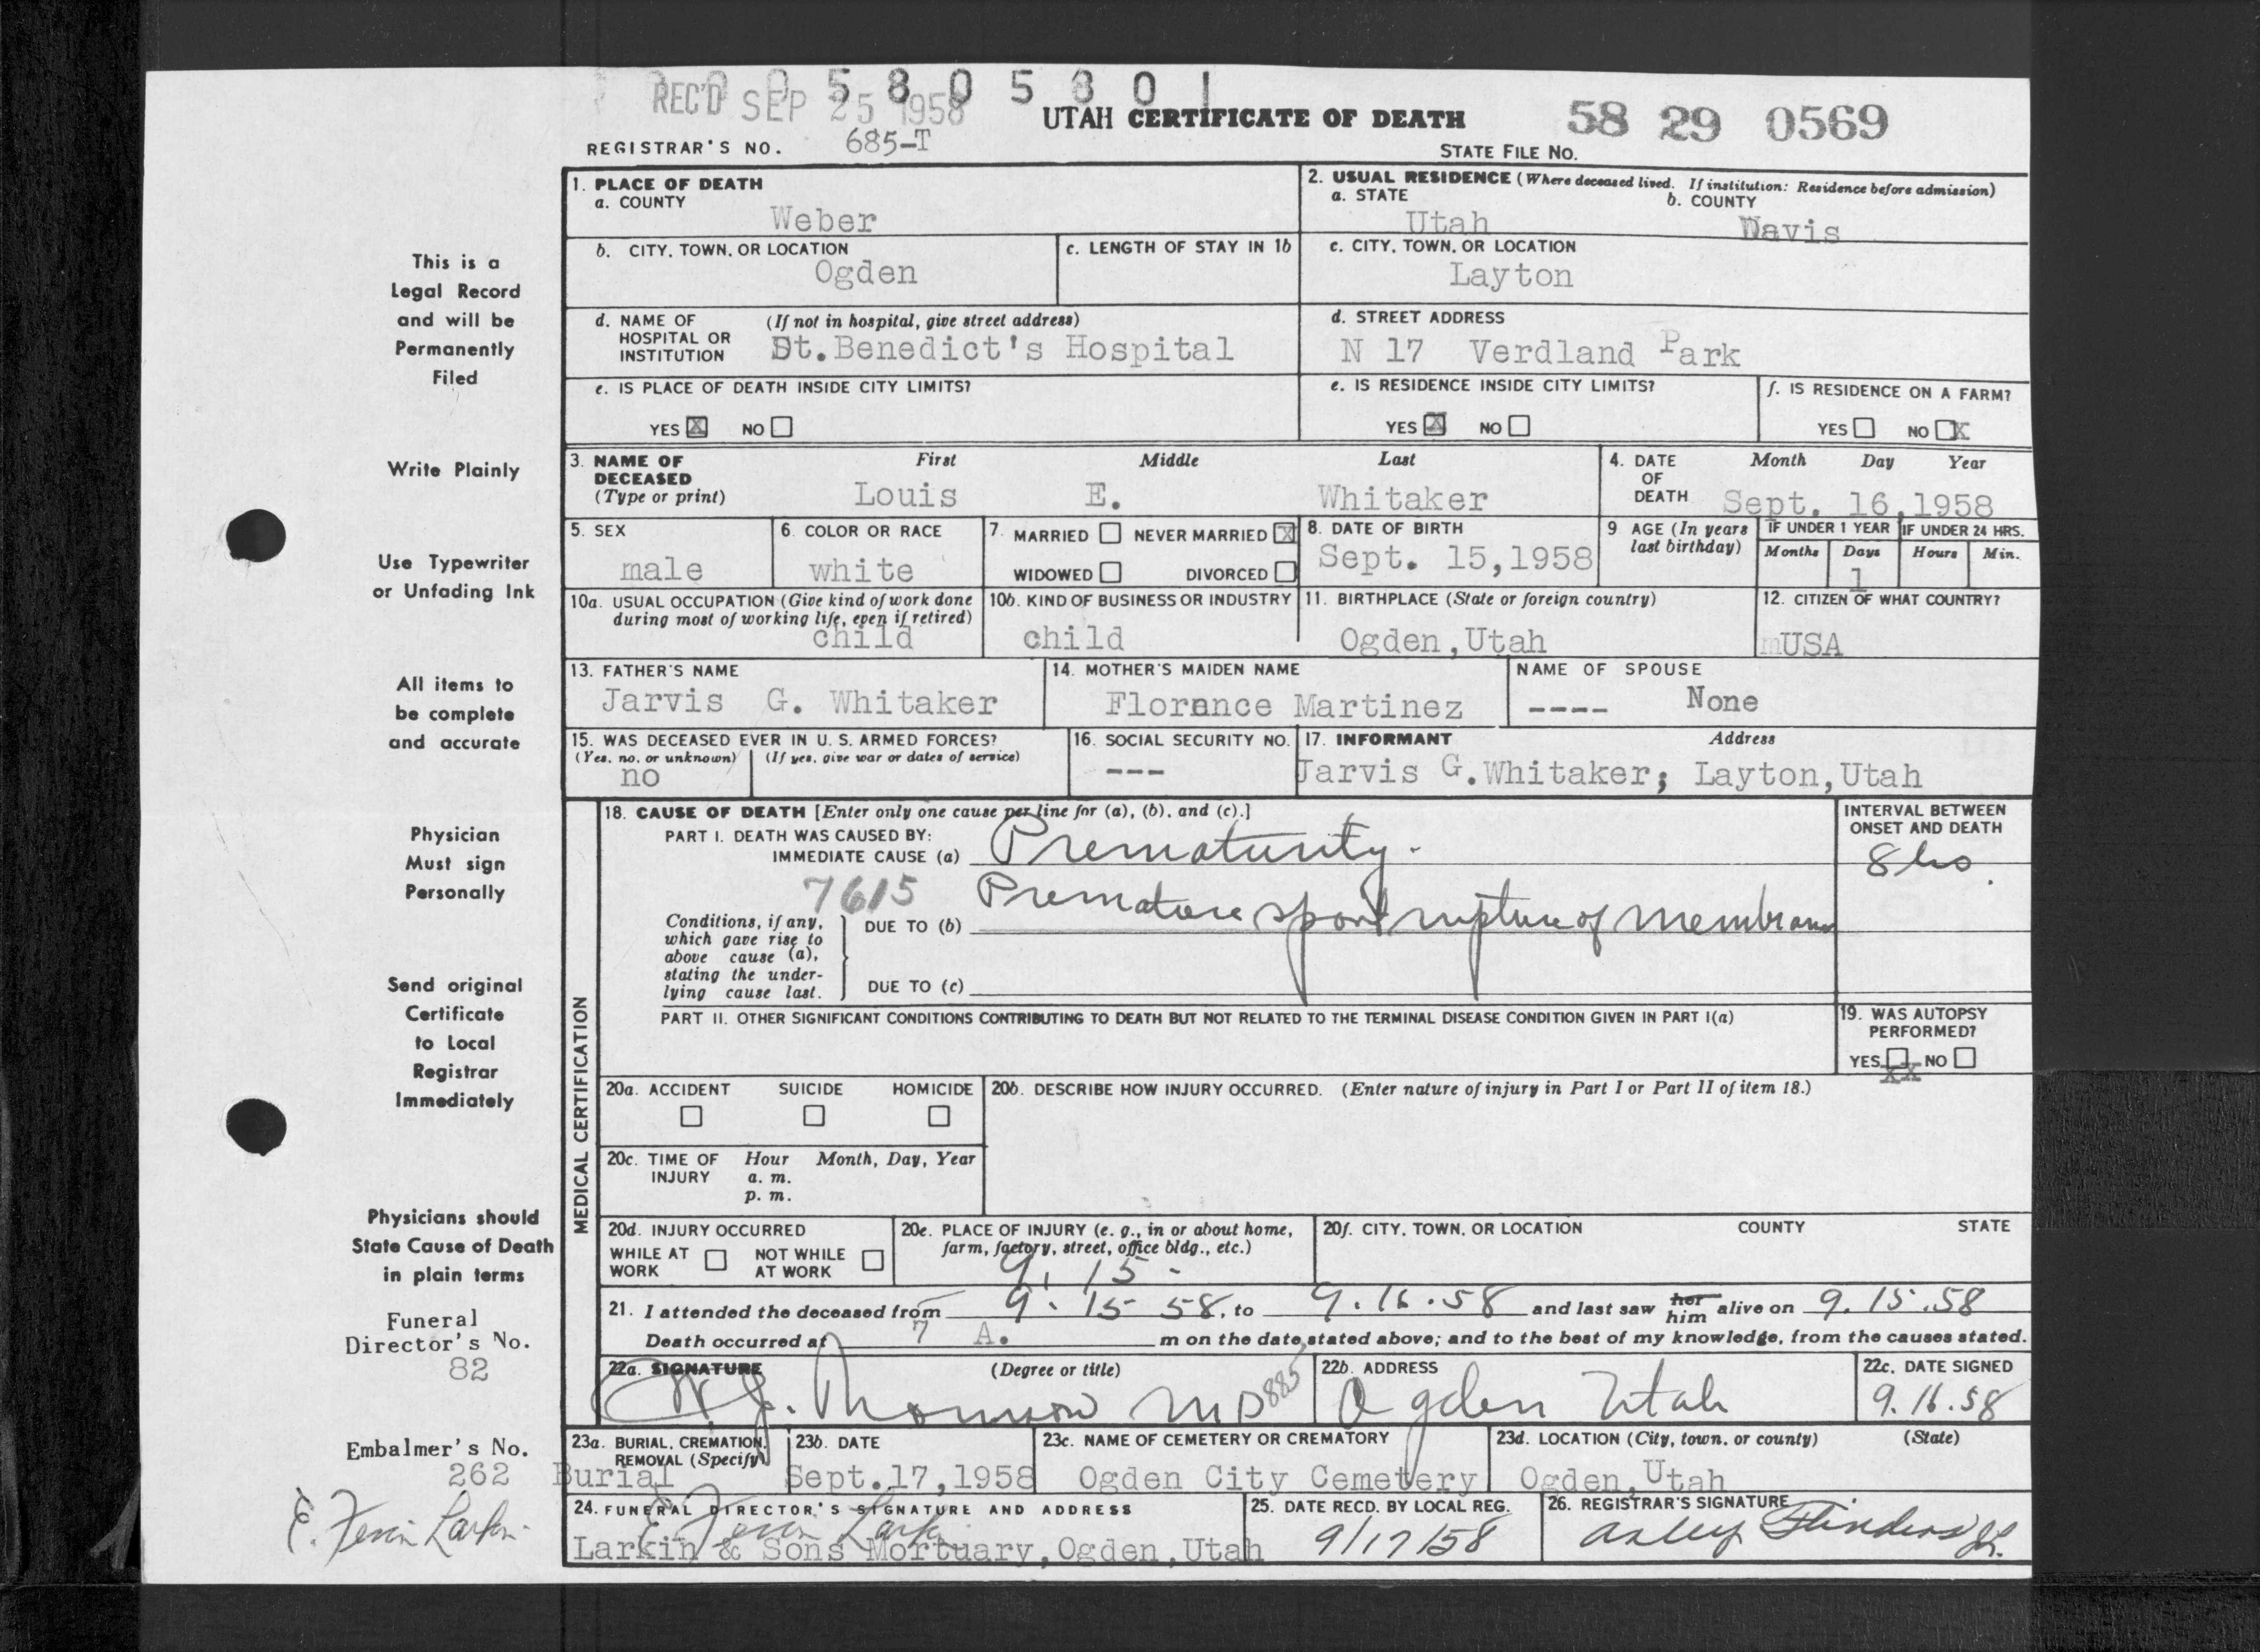 REC'D SEP 25 1958
UTAH CERTIFICATE OF DEATH
58 29 0569
REGISTRAR'S NO. 685-T
STATE FILE NO.
1. PLACE OF DEATH
a. COUNTY
Weber
2. USUAL RESIDENCE (Where deceased lived. If institution: Residence before admission)
a. STATE b. COUNTY
Utah Davis
b. CITY, TOWN, OR LOCATION
Ogden
c. LENGTH OF STAY IN 1b
c. CITY, TOWN, OR LOCATION
Layton
d. NAME OF HOSPITAL OR INSTITUTION (If not in hospital, give street address)
St.Benedict's Hospital
d. STREET ADDRESS
N 17 Verdland Park
e. IS PLACE OF DEATH INSIDE CITY LIMITS?
YES X NO
e. IS RESIDENCE INSIDE CITY LIMITS?
YES X NO
f. IS RESIDENCE ON A FARM?
YES NO X
3. NAME OF DECEASED (Type or print)
First Middle Last
Louis E. Whitaker
4. DATE OF DEATH
Month Day Year
Sept. 16,1958
5. SEX
male
6. COLOR OR RACE
white
7. MARRIED NEVER MARRIED X
WIDOWED DIVORCED
8. DATE OF BIRTH
Sept. 15,1958
9 AGE (In years last birthday)
IF UNDER 1 YEAR IF UNDER 24 HRS.
Months Days Hours Min.
1
10a. USUAL OCCUPATION (Give kind of work done during most of working life, even if retired)
child
10b. KIND OF BUSINESS OR INDUSTRY
child
11. BIRTHPLACE (State or foreign country)
Ogden,Utah
12. CITIZEN OF WHAT COUNTRY?
USA
13. FATHER'S NAME
Jarvis G. Whitaker
14. MOTHER'S MAIDEN NAME
Florence Martinez
NAME OF SPOUSE
---- None
15. WAS DECEASED EVER IN U. S. ARMED FORCES?
(Yes, no, or unknown) (If yes, give war or dates of service)
no
16. SOCIAL SECURITY NO.
---
17. INFORMANT Address
Jarvis G.Whitaker; Layton,Utah
MEDICAL CERTIFICATION
18. CAUSE OF DEATH [Enter only one cause per line for (a), (b), and (c).]
PART I. DEATH WAS CAUSED BY:
IMMEDIATE CAUSE (a) Prematurity.
INTERVAL BETWEEN ONSET AND DEATH
7615
Conditions, if any, which gave rise to above cause (a), stating the underlying cause last.
DUE TO (b) Premature spont rupture of membranes
DUE TO (c)
PART II. OTHER SIGNIFICANT CONDITIONS CONTRIBUTING TO DEATH BUT NOT RELATED TO THE TERMINAL DISEASE CONDITION GIVEN IN PART I(a)
19. WAS AUTOPSY PERFORMED?
YES NO
XX
20a. ACCIDENT SUICIDE HOMICIDE
20b. DESCRIBE HOW INJURY OCCURRED. (Enter nature of injury in Part I or Part II of item 18.)
20c. TIME OF INJURY Hour Month, Day, Year
a. m.
p. m.
20d. INJURY OCCURRED
WHILE AT WORK NOT WHILE AT WORK
20e. PLACE OF INJURY (e. g., in or about home, farm, factory, street, office bldg., etc.)
20f. CITY, TOWN, OR LOCATION COUNTY STATE
9. 15 -
21. I attended the deceased from 9. 15 58, to 9.16.58 and last saw her him alive on 9.15.58
Death occurred at 7 A. m on the date stated above; and to the best of my knowledge, from the causes stated.
22a. SIGNATURE (Degree or title)
MD 885
22b. ADDRESS
Ogden Utah
22c. DATE SIGNED
9.16.58
23a. BURIAL, CREMATION, REMOVAL (Specify)
Burial
23b. DATE
Sept.17,1958
23c. NAME OF CEMETERY OR CREMATORY
Ogden City Cemetery
23d. LOCATION (City, town, or county) (State)
Ogden,Utah
24. FUNERAL DIRECTOR'S SIGNATURE AND ADDRESS
Larkin & Sons Mortuary,Ogden,Utah
25. DATE RECD. BY LOCAL REG.
9/17/58
26. REGISTRAR'S SIGNATURE
This is a
Legal Record
and will be
Permanently
Filed
Write Plainly
Use Typewriter
or Unfading Ink
All items to
be complete
and accurate
Physician
Must sign
Personally
Send original
Certificate
to Local
Registrar
Immediately
Physicians should
State Cause of Death
in plain terms
Funeral
Director's No.
82
Embalmer's No.
262